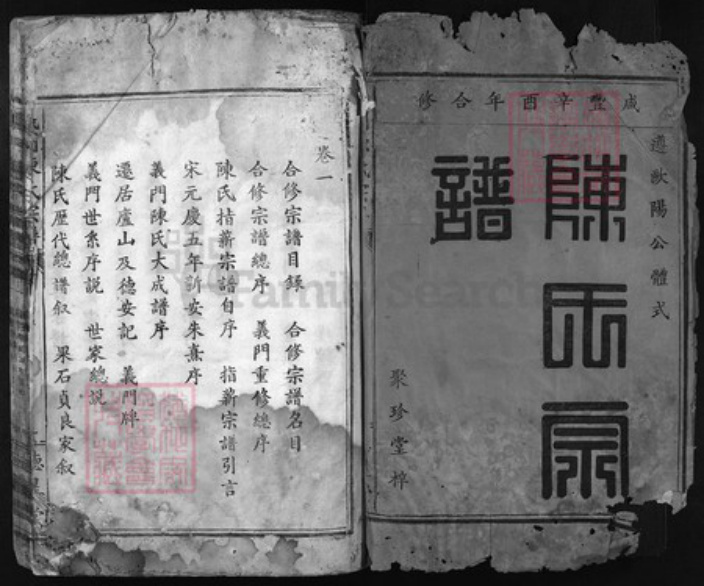 咸豐辛酉年合修
遵歐陽公體式
陳氏宗
譜
聚珍堂梓
卷一
合修宗譜目錄　合修宗譜名目
合修宗譜總序　義門重修總序
陳氏拮薪宗譜自序　指薪宗譜引言
宋元慶五年新安朱熹序
義門陳氏大成譜序
遷居廬山及德安記　義門牌
義門世系序說　世家總說
陳氏歷代總譜叙　果石貞良家叙
FamilySearch